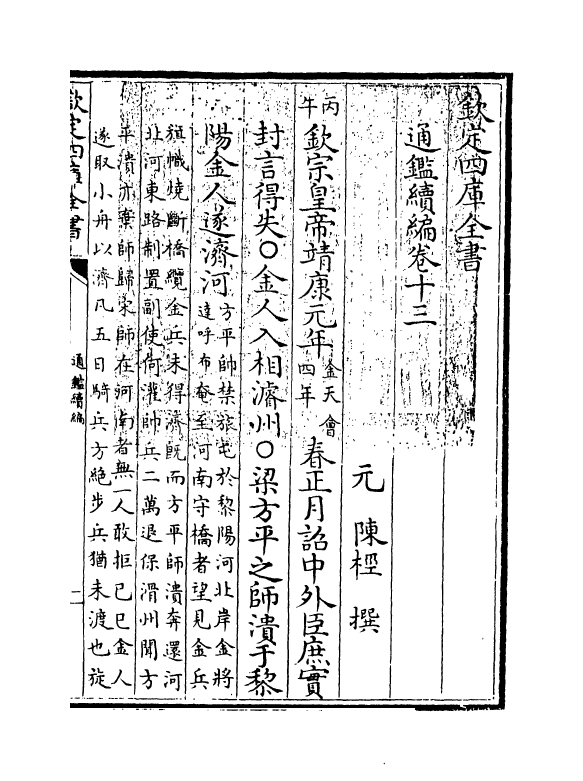 欽定四庫全書
通鑑續編卷十三
元 陳桱 撰
丙午
欽宗皇帝靖康元年
金天會
四年
春正月詔中外臣庶實
封言得失○金人入相濬州○梁方平之師潰于黎
陽金人遂濟河
方平帥禁旅屯於黎陽河北岸金將
達呼布奄至河南守橋者望見金兵
旗幟燒斷橋纜金兵未得濟既而方平師潰奔還河
北河東路制置副使何灌帥兵二萬退保滑州聞方
平潰亦棄師歸宋師在河南者無一人敢拒己巳金人
遂取小舟以濟凡五日騎兵方絶步兵猶未渡也旋
欽定四庫全書
通鑑續編